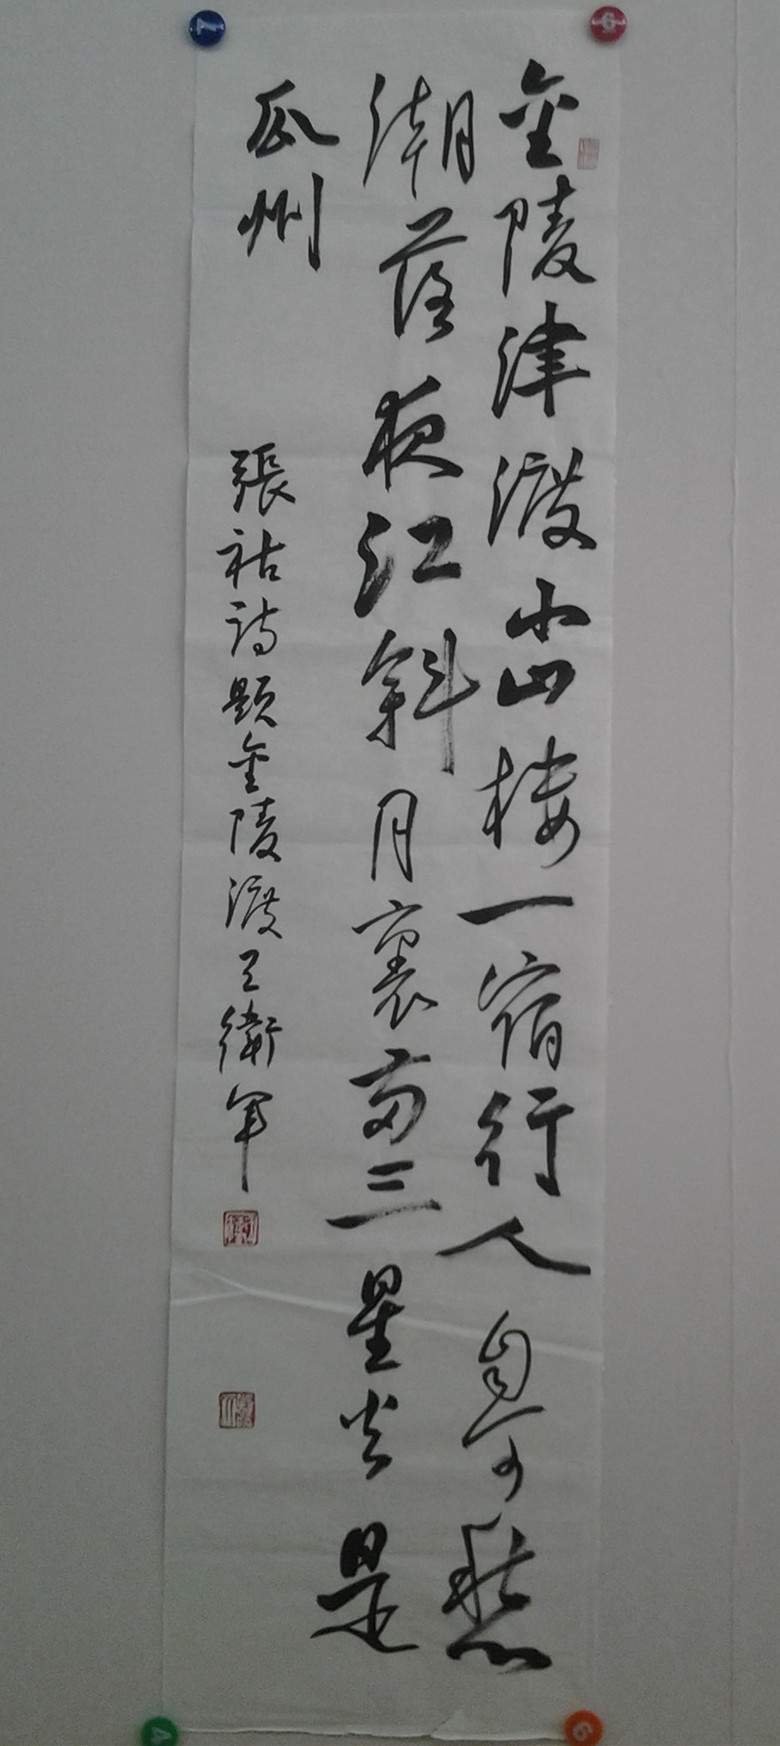 金陵津渡小山楼一宿行人自可愁
潮落夜江斜月裏两三星火是
瓜州
張祜诗题金陵渡王衛军